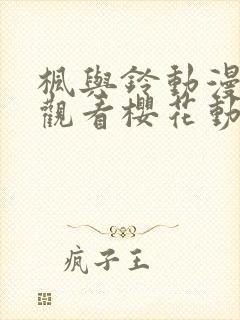 楓與鈴動漫
觀看櫻花動
疯子王